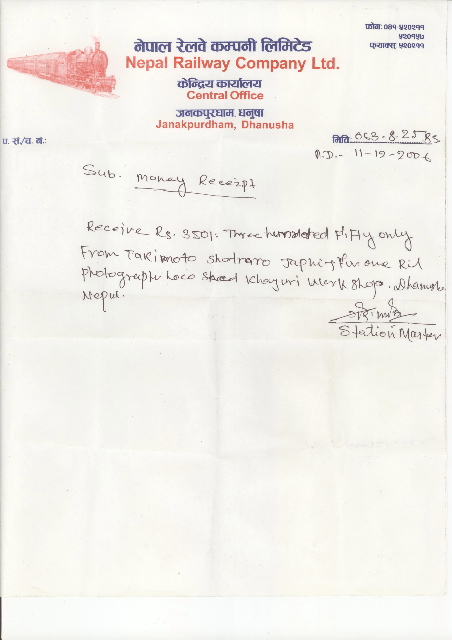 फोनः ०४१ ५२०२११
५२०१५७
फ्याक्सः ५२०२११
नेपाल रेलवे कम्पनी लिमिटेड
Nepal Railway Company Ltd.
केन्द्रिय कार्यालय
Central Office
जनकपुरधाम, धनुषा
Janakpurdham, Dhanusha
प. सं./च. नं.:
मितिः 063-8-25
11-12-2006
Sub. Money Receipt
Receive Rs. 350/. Three hundred Fifty only
From Takimoto Japni for one
photograph Loco Shead Khajuri Work Shop.
Nepal.
Station Master